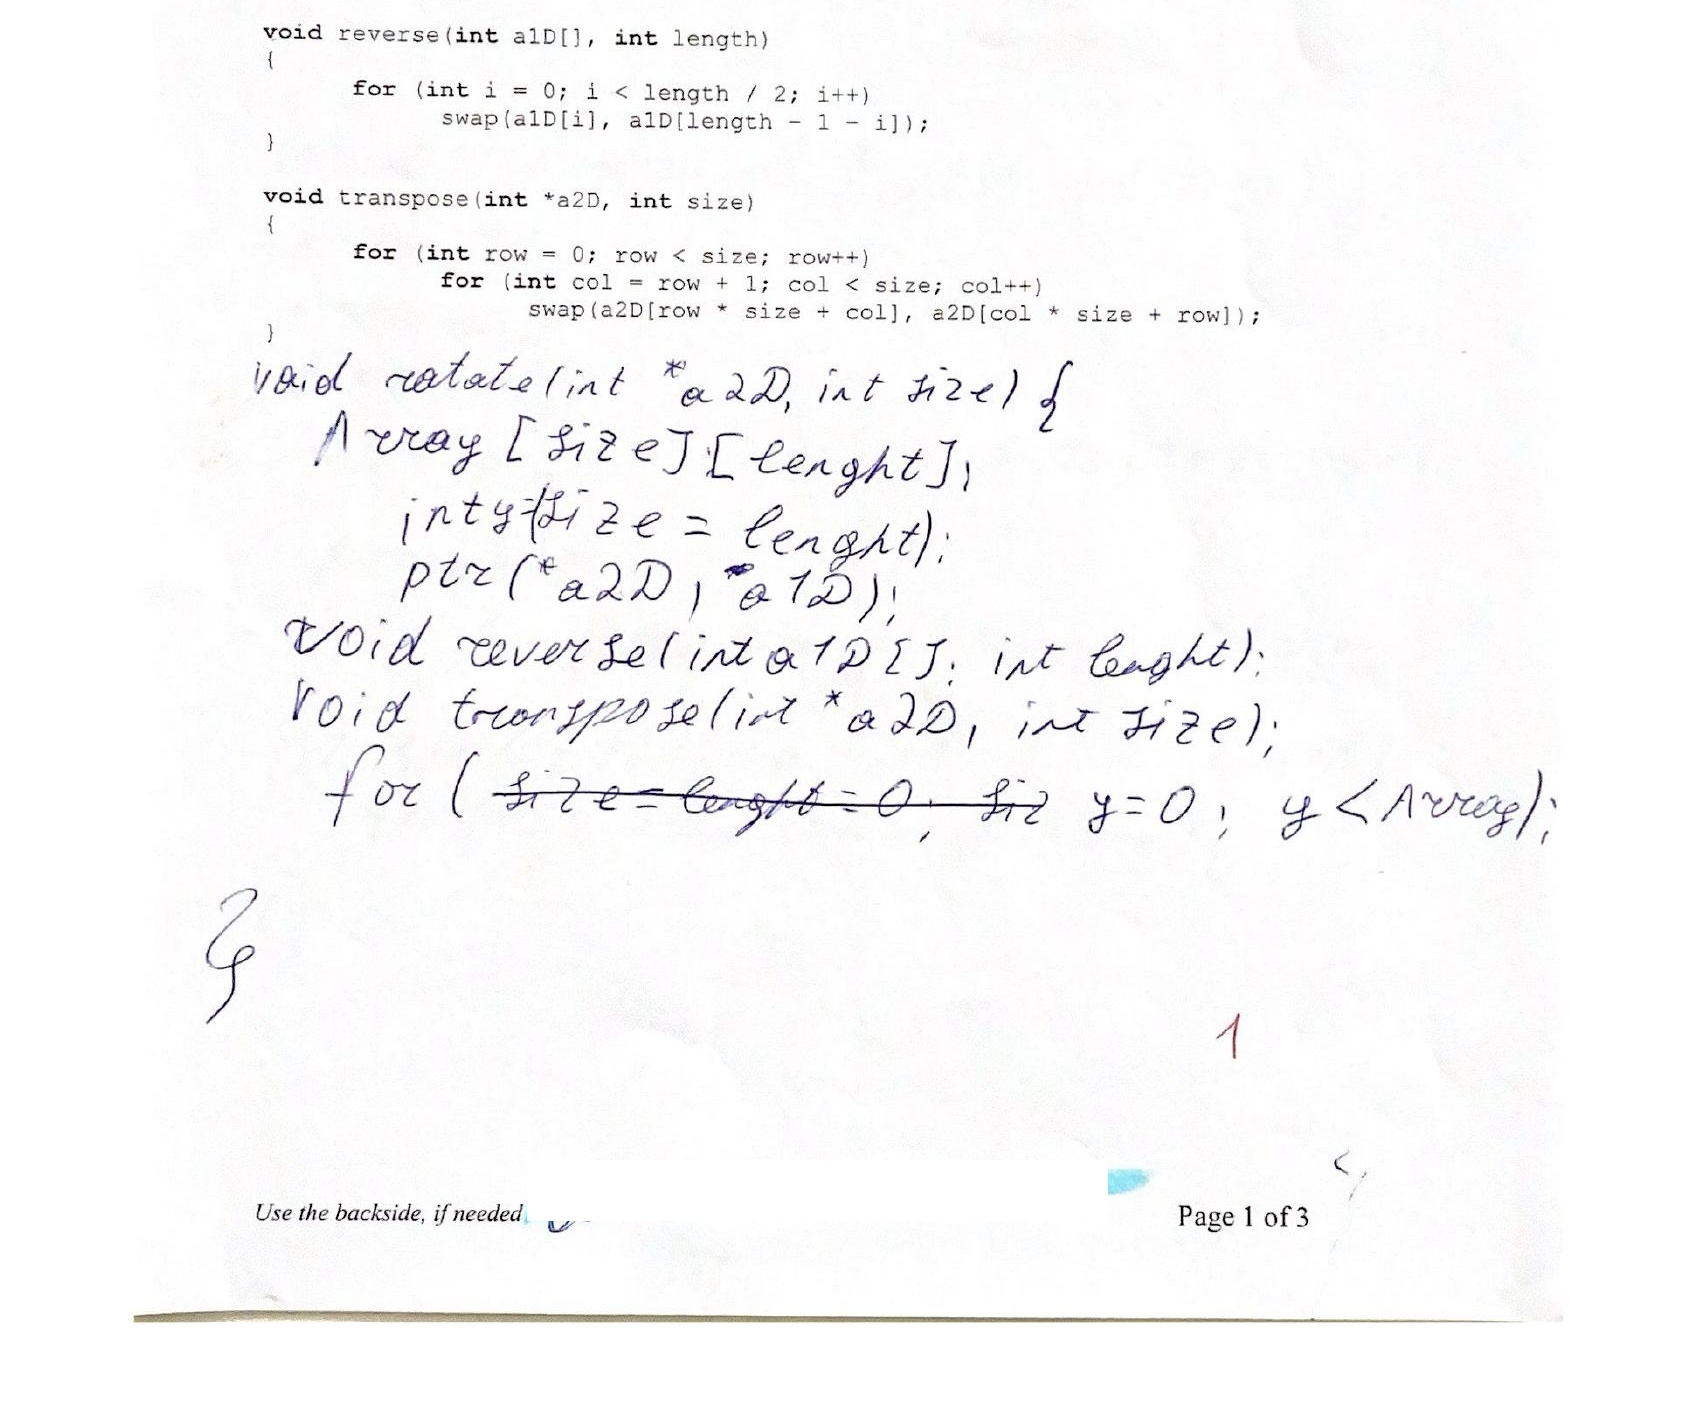 void reverse(int a1D[], int length)
{
for (int i = 0; i < length / 2; i++)
swap(a1D[i], a1D[length - 1 - i]);
}
void transpose(int *a2D, int size)
{
for (int row = 0; row < size; row++)
for (int col = row + 1; col < size; col++)
swap(a2D[row * size + col], a2D[col * size + row]);
}
void rotate(int *a2D, int size) {
Array [size][lenght];
size = lenght);
ptr(*a2D, *a1D);
void reverse(int a1D[]; int lenght);
void transpose(int *a2D, int size);
for ( size = lenght = 0; siz y=0; y<Array);
}
1
Use the backside, if needed
Page 1 of 3